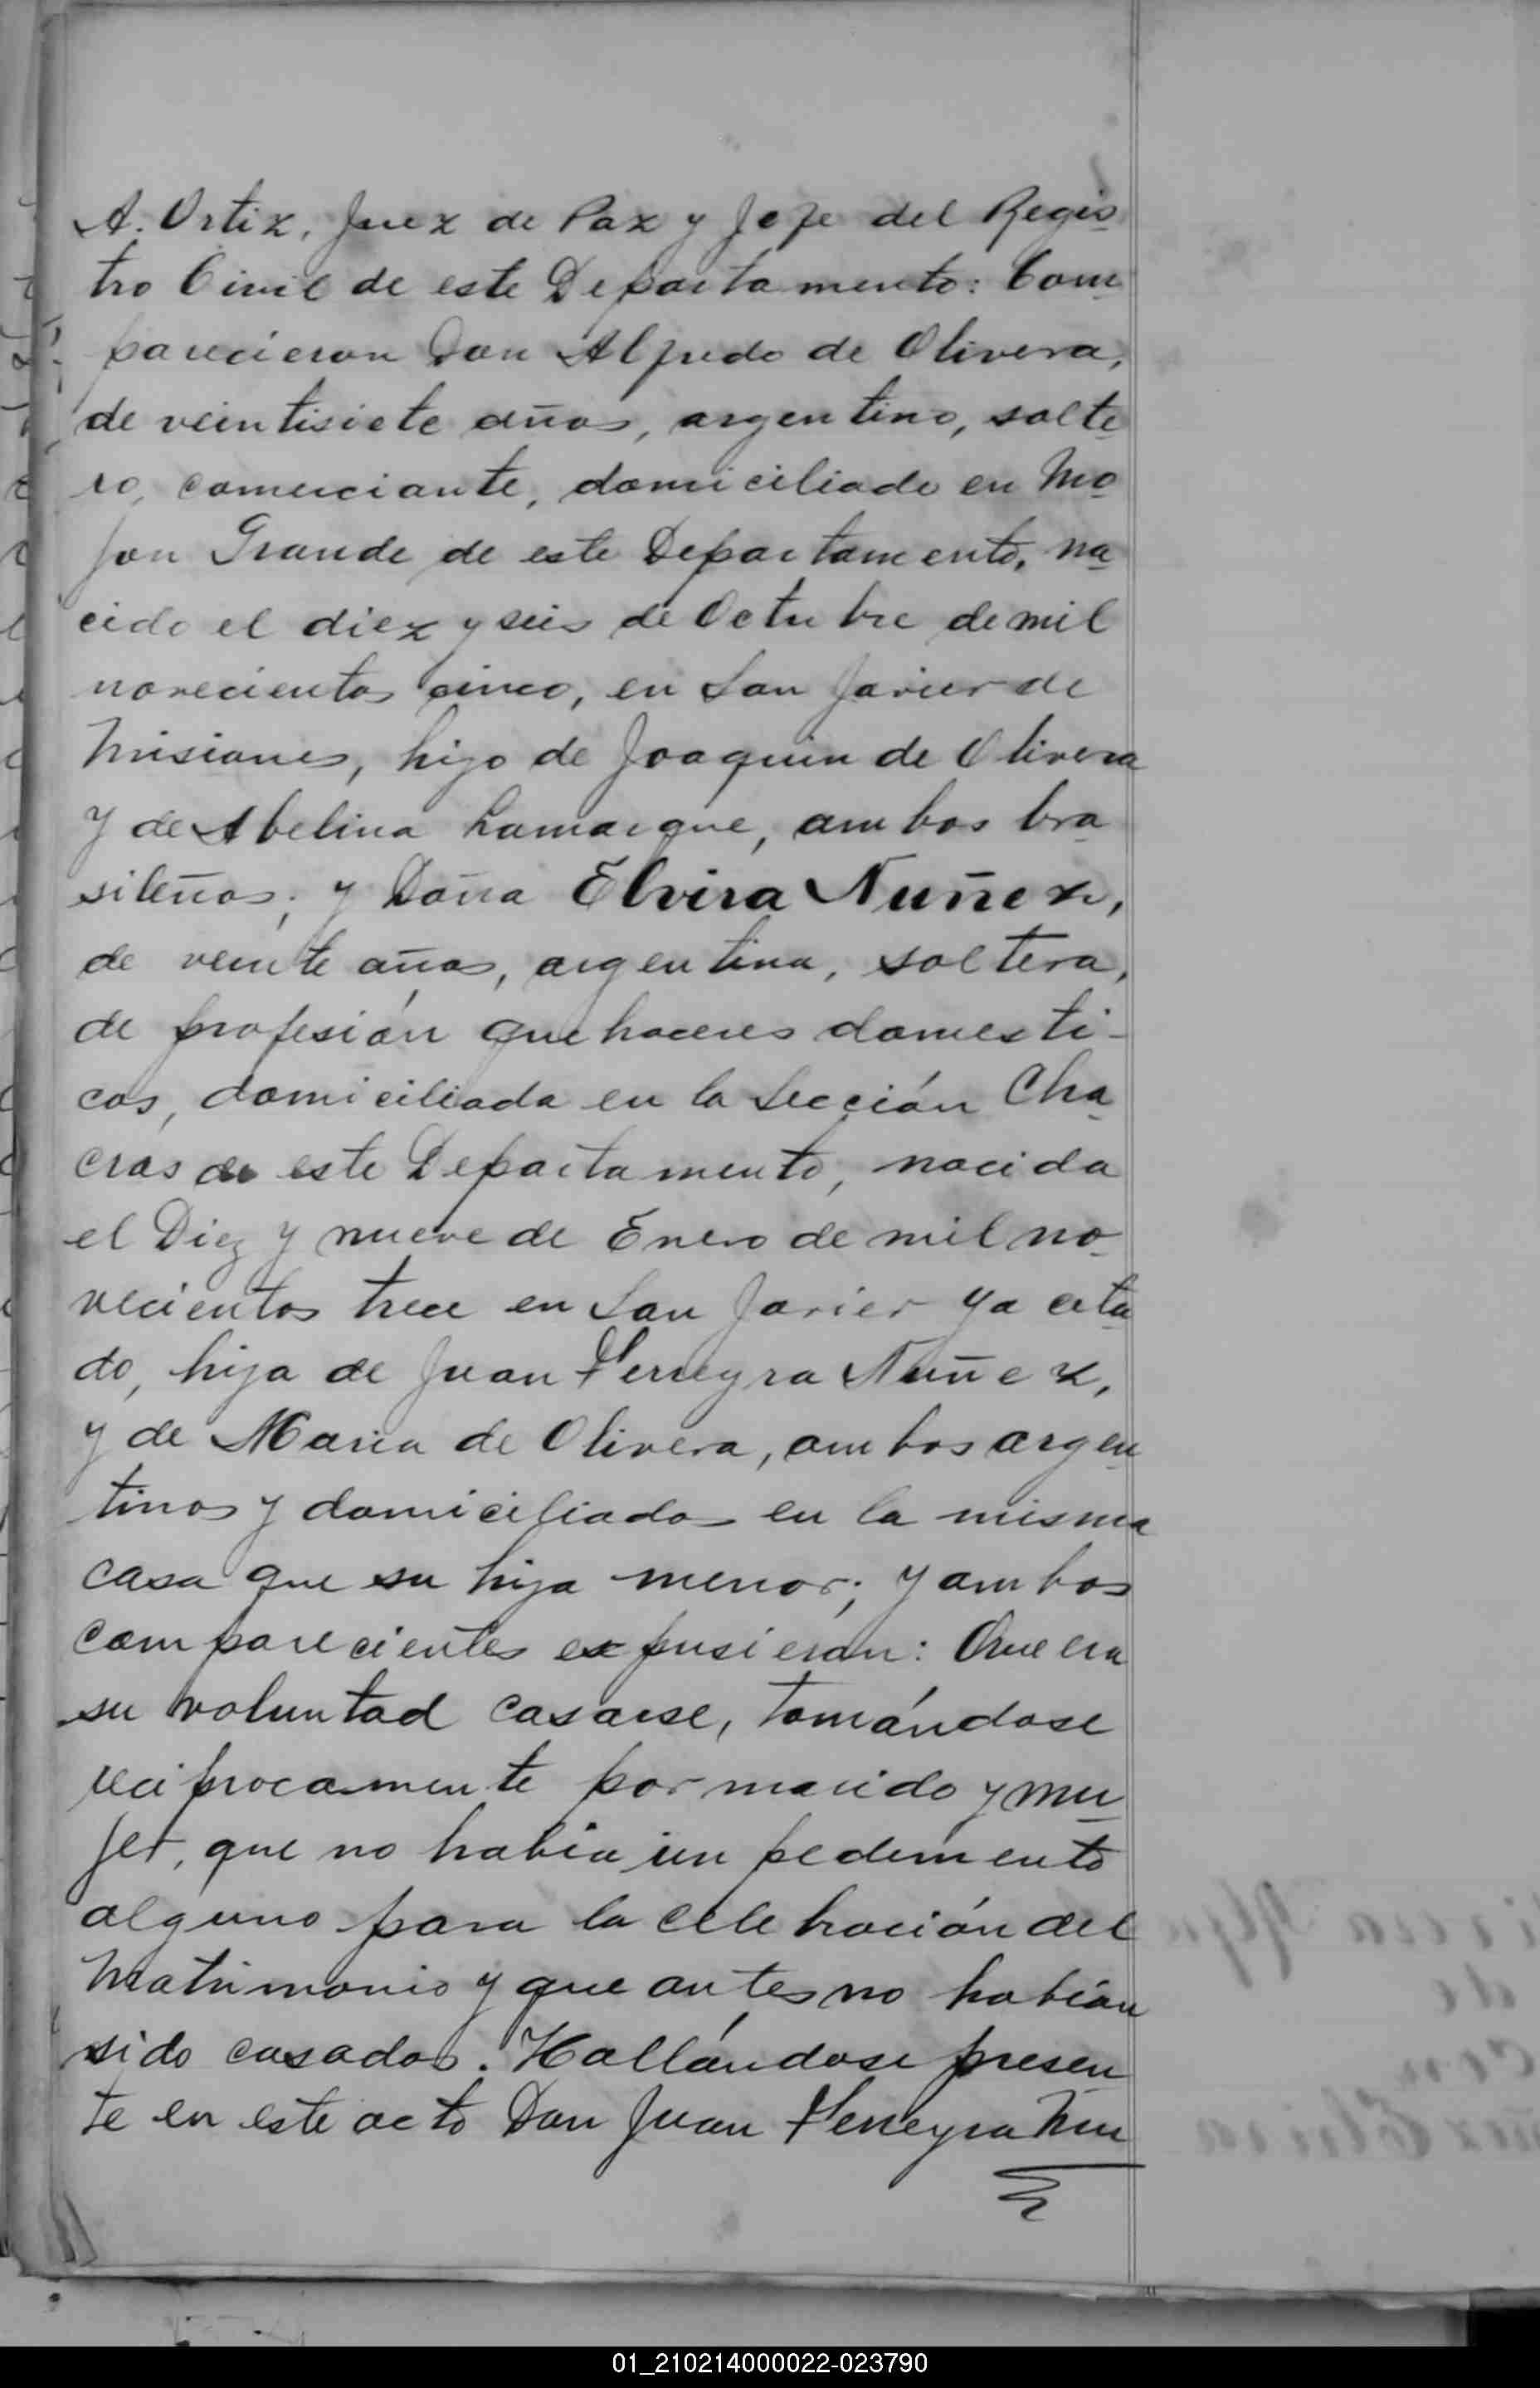 A. Ortiz, Juez de Paz y Jefe del Regis
tro Civil de este Departamento: Com
parecieron Don Alfredo de Olivera,
de veintisiete años, argentino, solte
ro, comerciante, domiciliado en Mo
jon Grande de este Departamento, na
cido el diez y seis de Octubre de mil
novecientos cinco, en San Javier de
Misiones, hijo de Joaquin de Olivera
y de Abelina Lamarque, ambos bra
sileños; y Doña Elvira Nuñez,
de veinte años, argentina, soltera,
de profesión quehaceres domesti-
cos, domiciliada en la Sección Cha
cras de este Departamento, nacida
el Diez y nueve de Enero de mil no
vecientos trece en San Javier ya cita
do, hija de Juan Ferreyra Nuñez,
y de Maria de Olivera, ambos argen
tinos y domiciliados en la misma
casa que su hija menor; y ambos
comparecientes expusieron: Que era
su voluntad casarse, tomándose
reciprocamente por marido y mu
jer, que no habia impedimento
alguno para la celebración del
Matrimonio y que antes no habían
sido casados. Hallándose presen
te en este acto Don Juan Ferreyra Nu
01_210214000022-023790